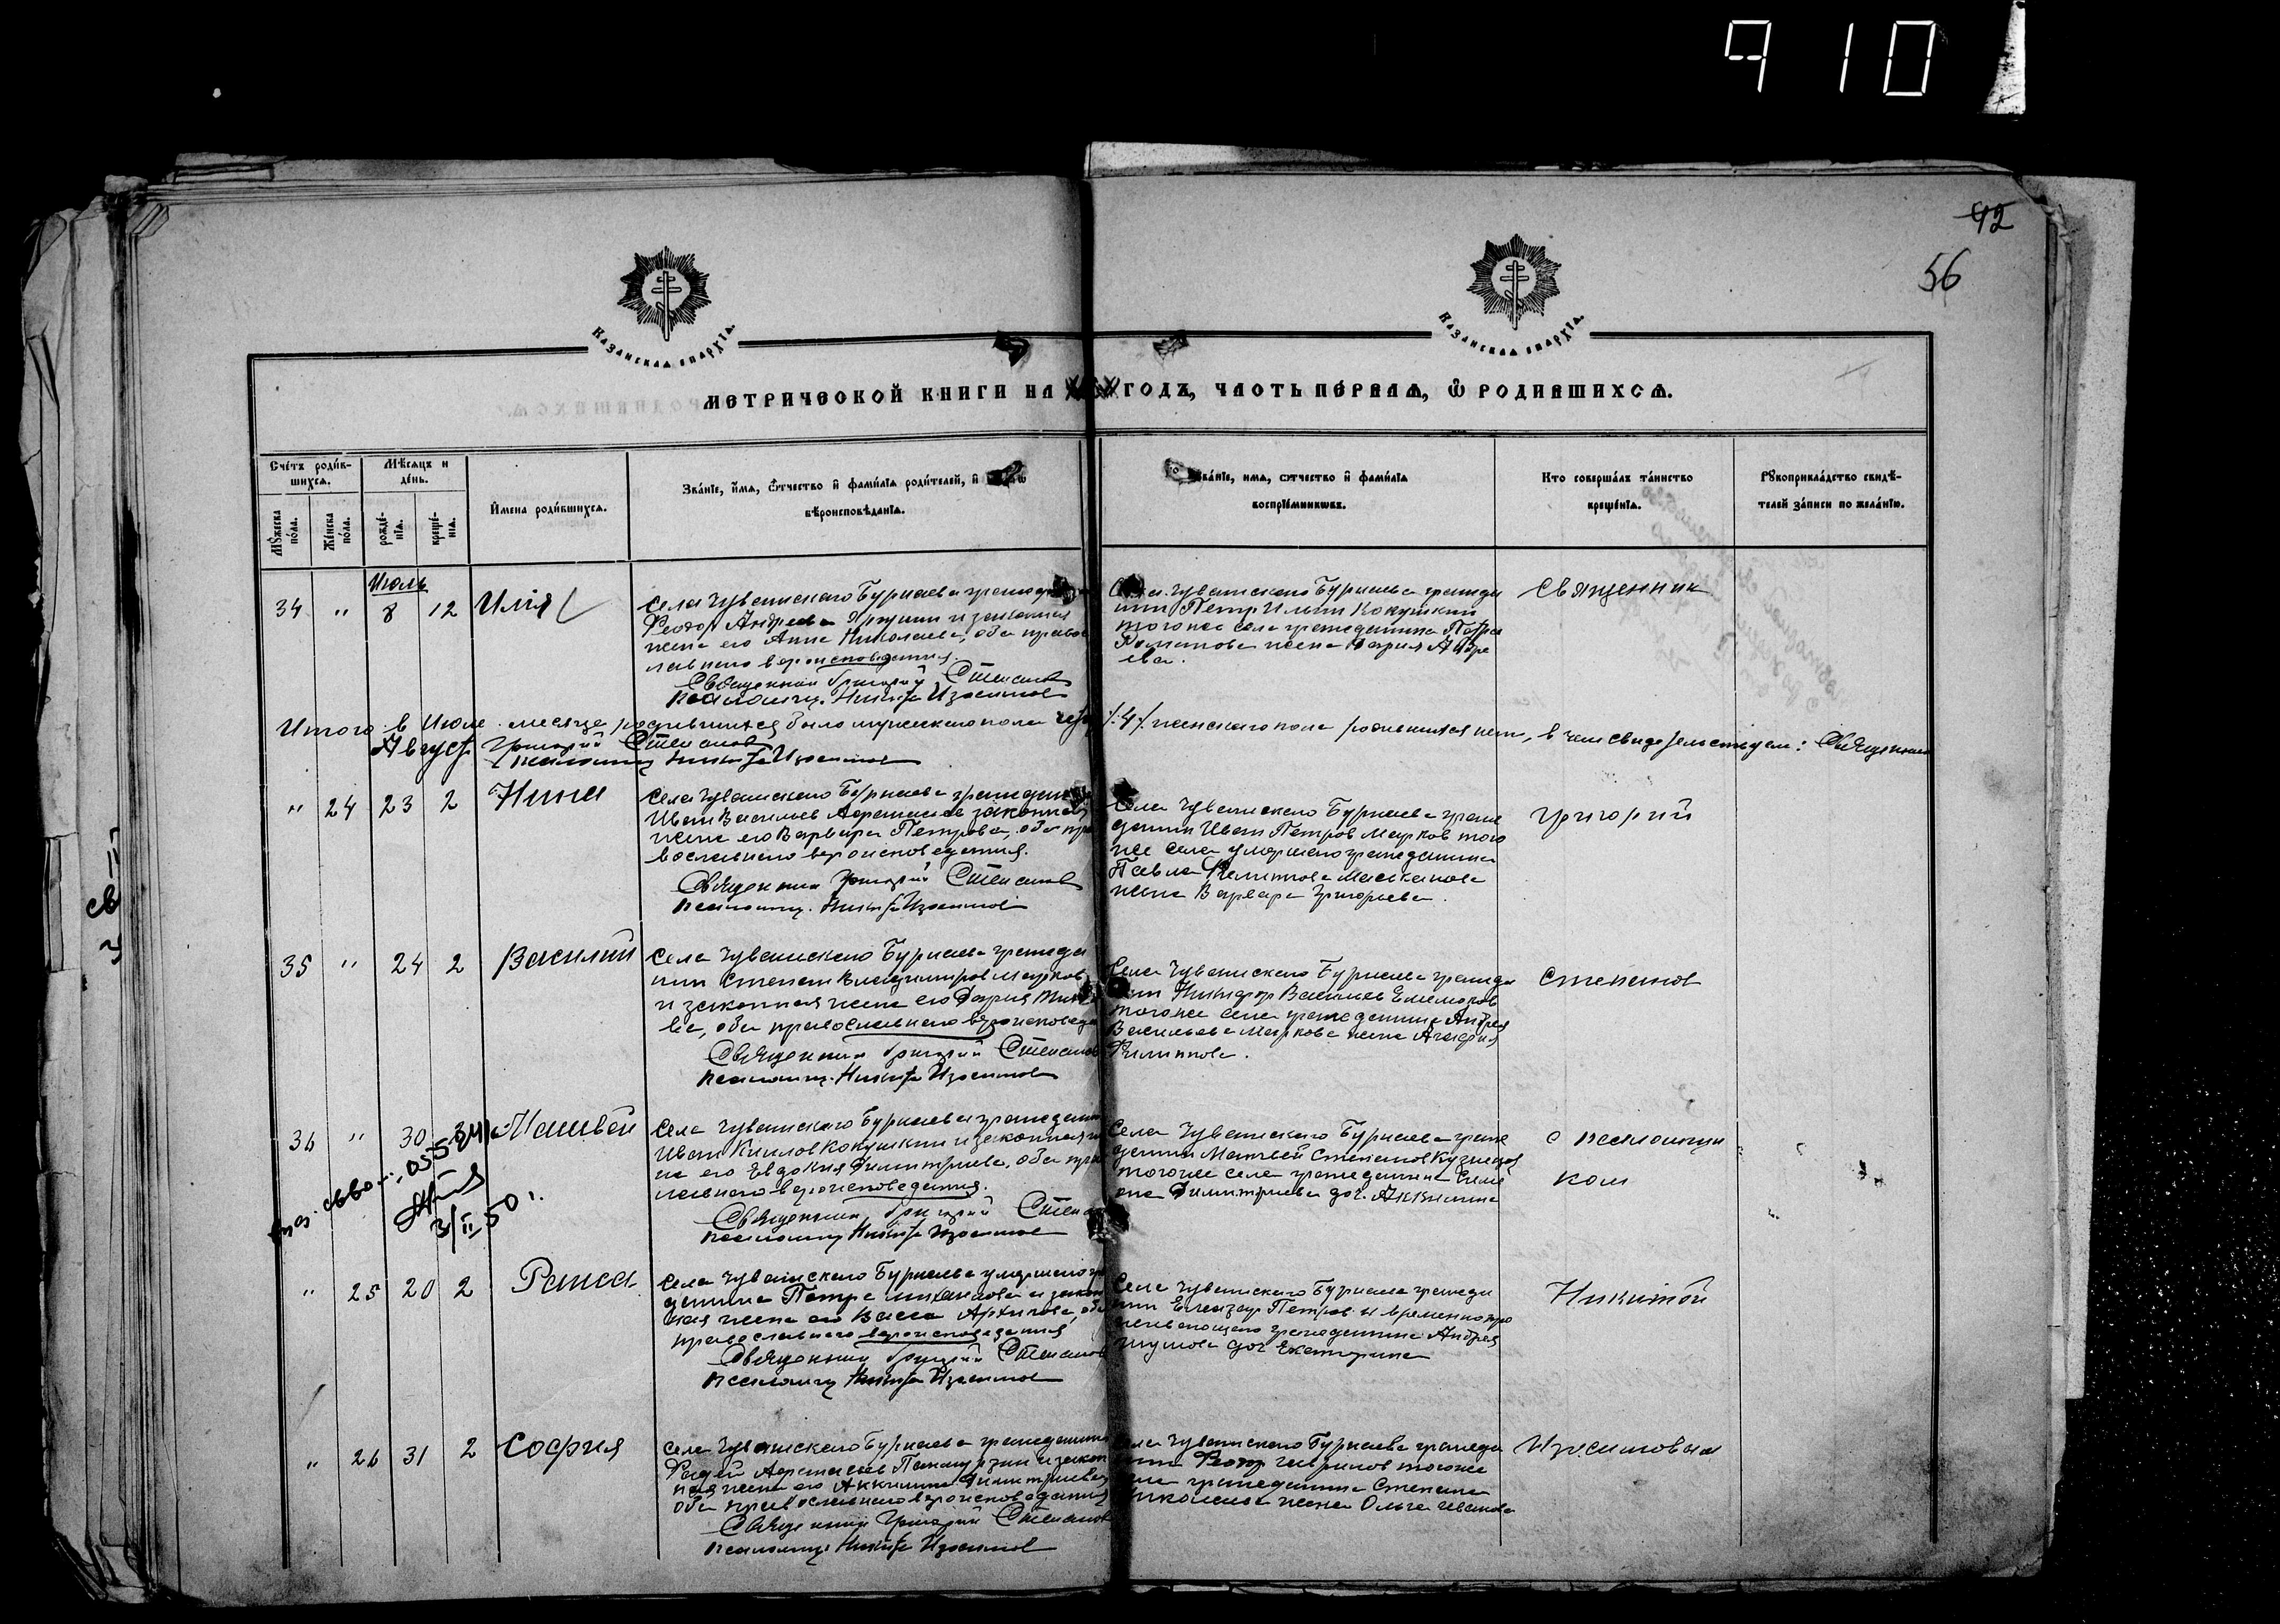 910
42
56
КАЗАНСКАѦ ЕПАРХІѦ.
КАЗАНСКАѦ ЕПАРХІѦ.
МЕТРИЧЕСКОЙ КНИГИ НА ГОДЪ, ЧАСТЬ ПЕ́РВАѦ, Ѽ РОДИВШИХСѦ.
Сче́тъ роди́в-
шихсѧ.
Мѣсѧцъ и
де́нь.
И҆мена роди́вшихсѧ.
Зва́нїе, и҆́мѧ, ѻ҆́тчество и҆ фами́лїѧ роди́телей, и҆
вѣроисповѣ́данїѧ.
Зва́нїе, имѧ, ѻтчество и҆ фами́лїѧ
воспрїе́мниковъ.
Кто соверша́лъ та́инство
креще́нїѧ.
Рꙋкоприкла́дство свидѣ́-
телей за́писи по жела́нїю.
Мꙋ́жеска
по́ла.
Же́нска
по́ла.
рожде́-
нїѧ.
креще́-
нїѧ.
Июль
34 " 8 12 Илія
Села Чувашского Бурнаева
Федор Андреев и законная
жена его Анна Николаева, оба правос
лавного вероисповедания.
Священник Григорий Степанов
Псаломщ. Никита Изосимов
Села Чувашского Бурнаева гражда
нин Петр Ильин Кокушкин
тогоже села гражданина Петра
Романова жена Дария Андре
ева.
Священник
Итого в Июле месяце родившихся было мужеского пола
/:4:/ женского пола родившихся нет, в чем свидетельствуем: Священник
Август Григорий Степанов
Псаломщ Никита Изосимов
" 24 23 2 Нина
Села Чувашского Бурнаева
Иван Васильев Афанасьев законная
жена его Варвара Петрова, оба пра
вославного вероисповедания.
Священник Григорий Степанов
Псаломщ. Никита Изосимов
Села Чувашского Бурнаева граж
данин Иван Петров Марков того
же села умершего гражданина
Павла Филиппова
жена Варвара Григорьева.
Григорий
35 " 24 2 Василий
Села Чувашского Бурнаева гражда
нин Степан Владимиров Марков
и законная жена его Дария
ва, оба православного вероисповеда
Священник Григорий Степанов
Псаломщ. Никита Изосимов
Села Чувашского Бурнаева гражда
нин Никифор Васильев
тогоже села гражданина Андрея
Васильева Маркова жена Агафия
Филиппова.
Степанов
36 " 30
Села Чувашского Бурнаева гражданин
Иван Кокушкин и законная
на его Евдокия Димитриева, оба пра
лавного вероисповедания.
Священник Григорий Степан
Псаломщ Никита Изосимов
Села Чувашского Бурнаева граж
данин Матвей Степанов Кузнецов
тогоже села гражданина
Димитриева доч. Аккилина
с псаломщи
ком
3/II 50 г.
" 25 20 2 Раиса
Села Чувашского Бурнаева умершего
данина Петра и закон
ная жена его Васса Архипова, оба
православного вероисповедания
Священник Григорий Степанов
Псаломщ Никита Изосимов
Села Чувашского Бурнаева гражда
нин Елеазар Петров и временно про
живающего гражданина Андрея
доч Екатерина
Никитой
" 26 31 2 София
Села Чувашского Бурнаева гражданин
Фадей Афанасьев и закон
ная жена его Аккилина Димитриева
оба православного вероисповедания
Священник Григорий Степанов
Псаломщ Никита Изосимов
Села Чувашского Бурнаева гражда
нин Федор Гаврилов тогоже
села гражданина Степана
Николаева жена Ольга Иванова
Изосимовым